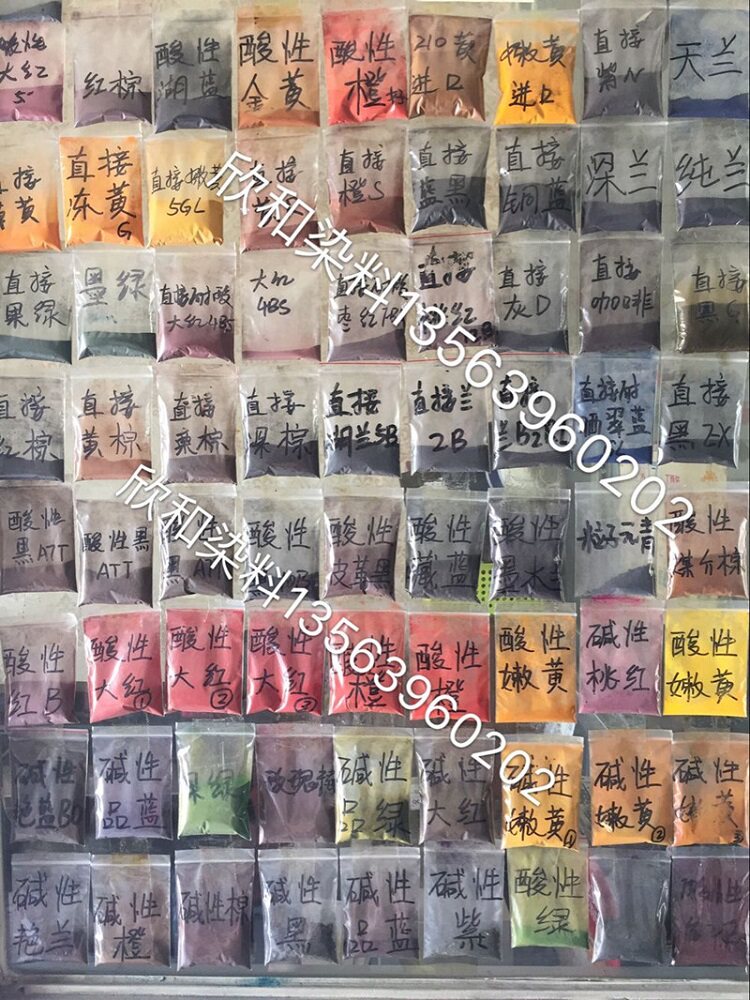 酸性
大红
5
红棕
酸性
湖蓝
酸性
金黄
酸性
橙
210黄
进口
嫩黄
进口
直接
紫N
天兰
直接
直接
冻黄
G
直接嫩黄
5GL
直接
橙S
直接
蓝黑
直接
铜蓝
深兰
纯兰
直接
果绿
墨绿
直接耐酸
大红4BS
大红
4BS
枣红
直接
灰D
直接
咖啡
直接
黑G
直接
红棕
直接
黄棕
直接
栗棕
直接
深棕
直接
湖兰5B
直接兰
2B
直接
直接耐
晒翠蓝
直接
黑EX
酸性
黑ATT
酸性黑
ATT
酸性
黑ATT
酸性
酸性
皮革黑
酸性
藏蓝
酸性
墨水兰
粒子元青
酸性
媒介棕
酸性
红B
酸性
大红①
酸性
大红②
酸性
大红③
酸性
橙
酸性
橙
酸性
嫩黄
碱性
桃红
酸性
嫩黄
碱性
艳蓝BO
碱性
品蓝
果绿
玫瑰精
碱性
品绿
碱性
大红
碱性
嫩黄①
碱性
嫩黄②
碱性
嫩黄3
碱性
艳兰
碱性
橙
碱性棕
碱性
黑
碱性
品蓝
碱性
紫
酸性
绿
欣和染料13563960202
欣和染料13563960202